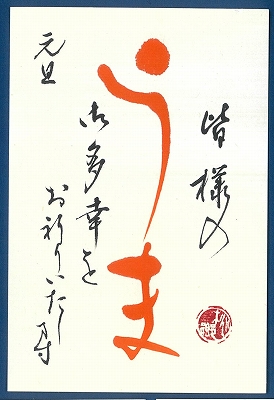 皆様の
うま
御多幸を
お祈りいたし
ます
元旦